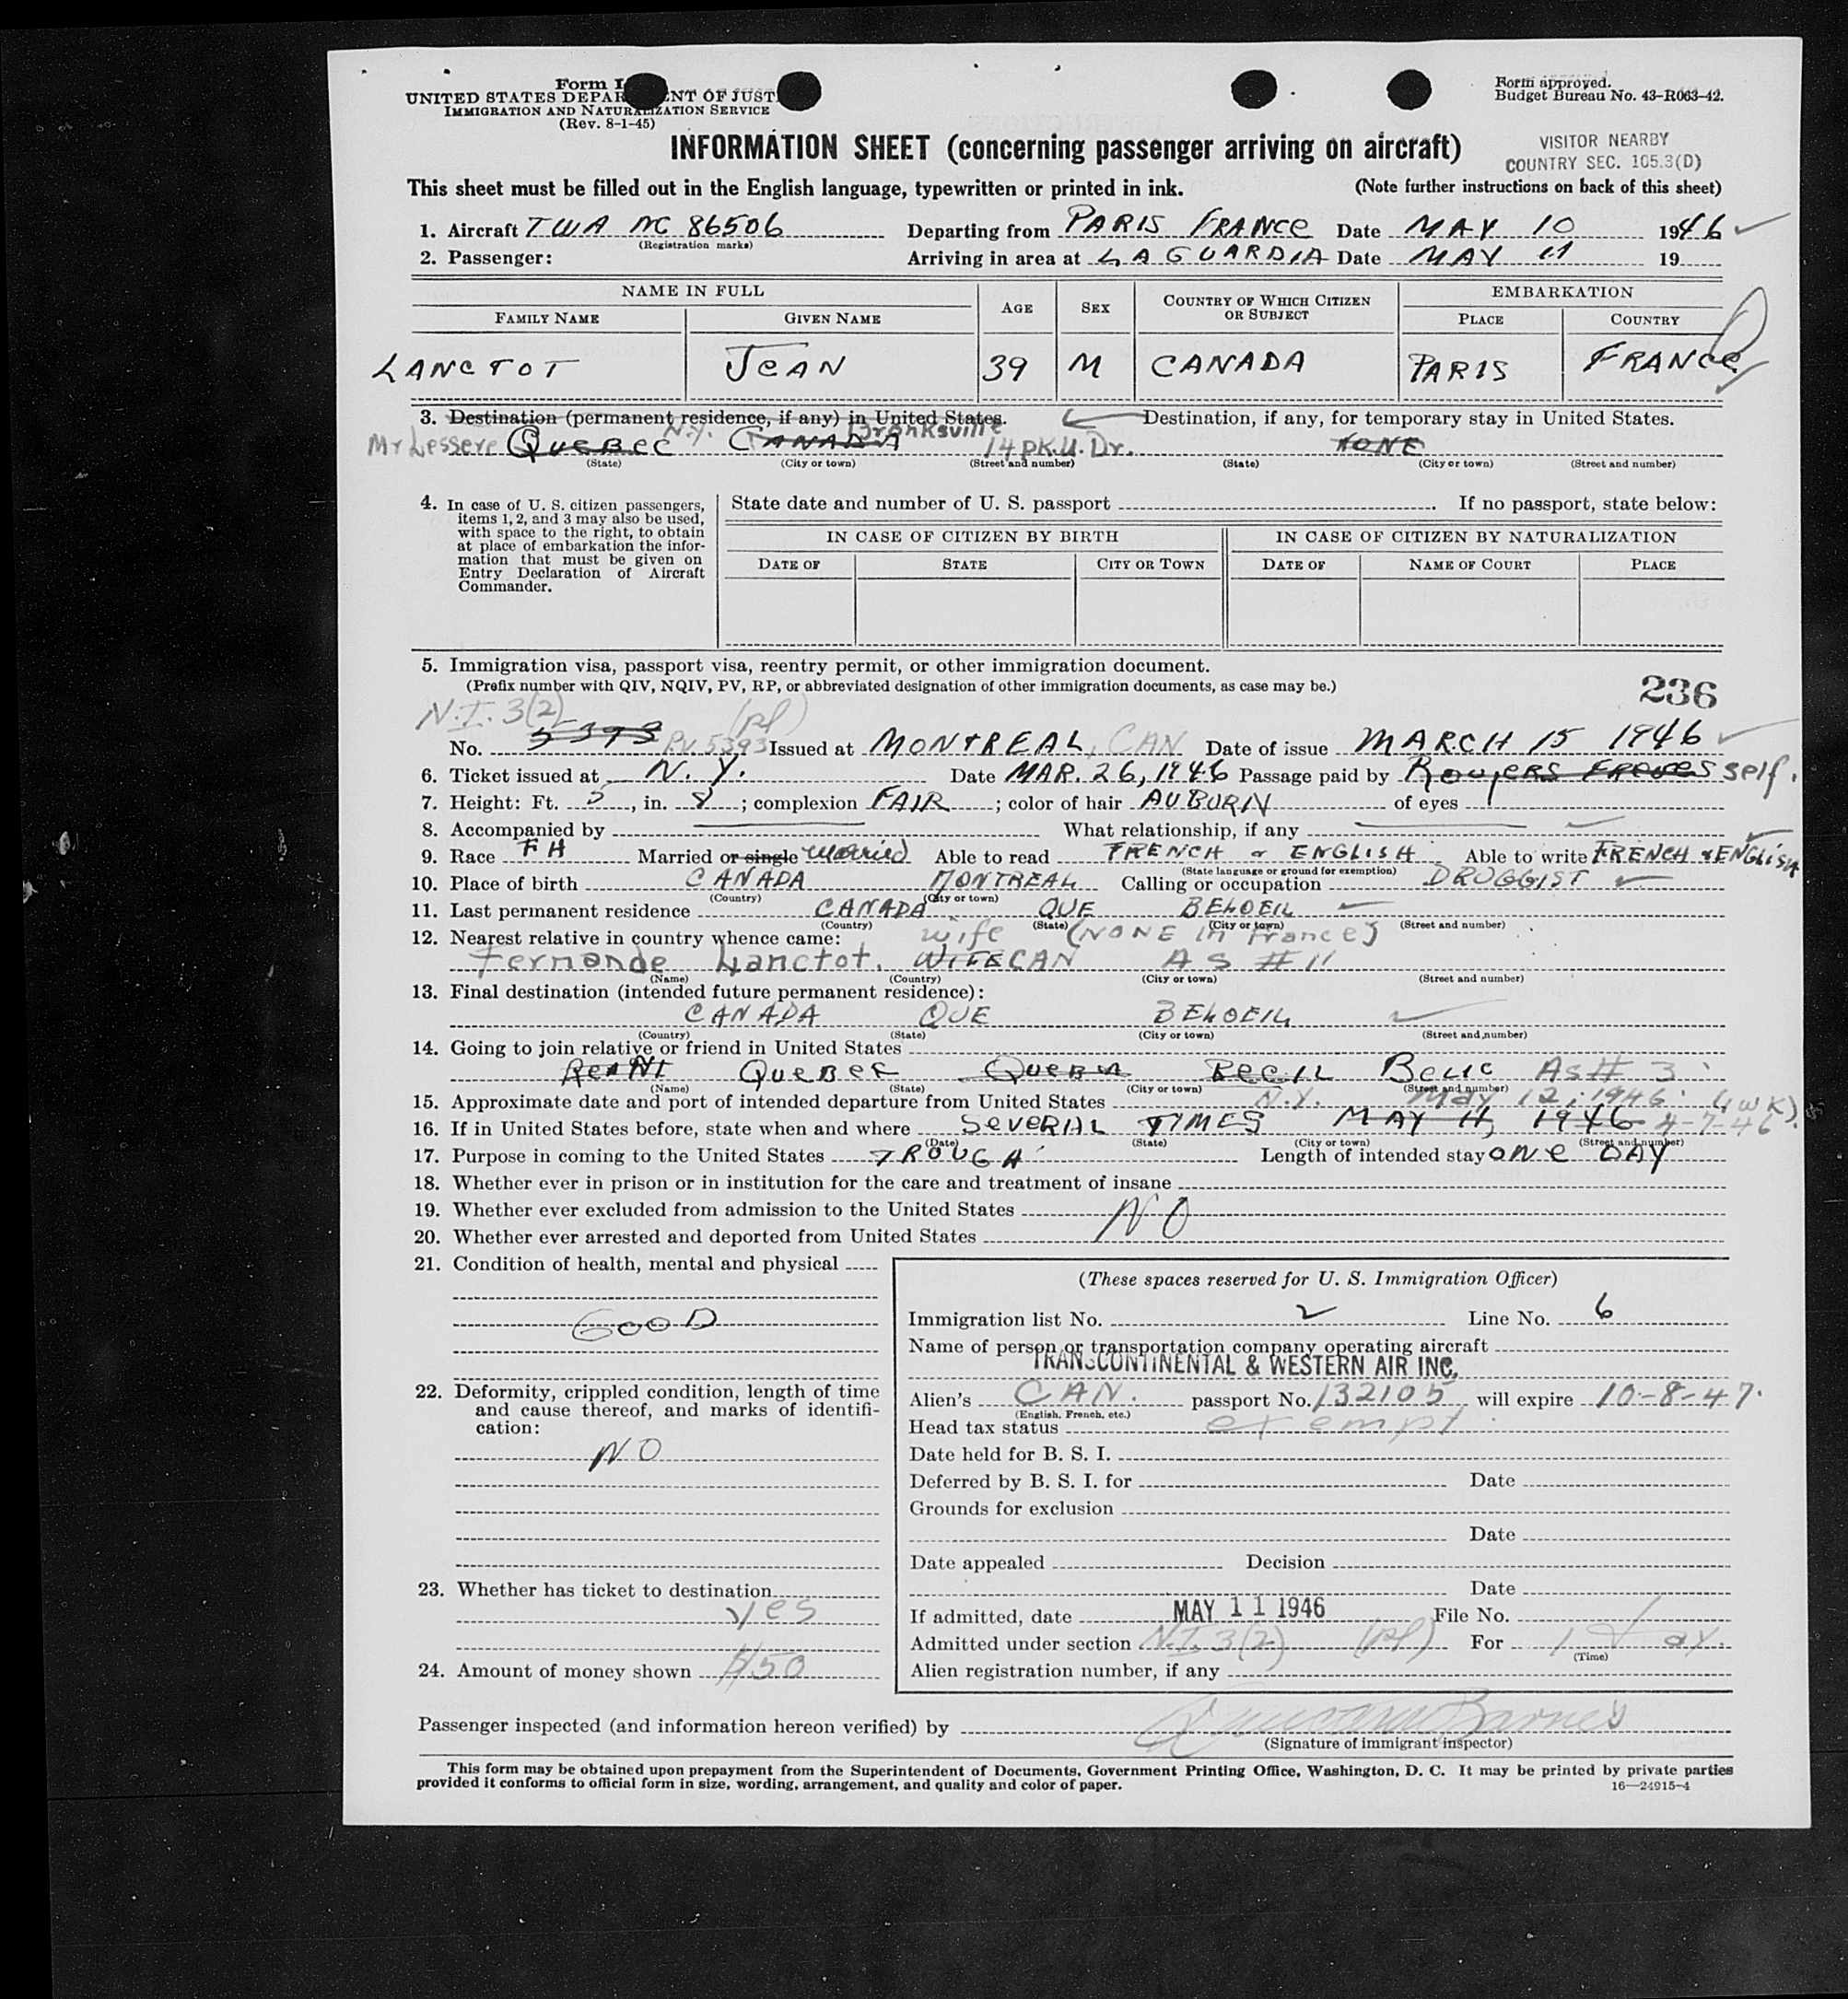 Form I
UNITED STATES DEPAR ENT OF JUST
IMMIGRATION AND NATURALIZATION SERVICE
(Rev. 8-1-45)
Form approved.
Budget Bureau No. 43-R063-42.
INFORMATION SHEET (concerning passenger arriving on aircraft)
VISITOR NEARBY
COUNTRY SEC. 105.3(D)
This sheet must be filled out in the English language, typewritten or printed in ink. (Note further instructions on back of this sheet)
1. Aircraft TWA NC 86506 Departing from PARIS FRANCE Date MAY 10 1946
(Registration marks)
2. Passenger: Arriving in area at LAGUARDIA Date MAY 11 19
NAME IN FULL AGE SEX COUNTRY OF WHICH CITIZEN OR SUBJECT EMBARKATION
FAMILY NAME GIVEN NAME PLACE COUNTRY
LANCTOT JEAN 39 M CANADA PARIS FRANCE
3. Destination (permanent residence, if any) in United States. Destination, if any, for temporary stay in United States.
Mr Lessere QUEBEC N.Y. CANADA Bronksville 14 PK.U. Dr. NONE
(State) (City or town) (Street and number) (State) (City or town) (Street and number)
4. In case of U. S. citizen passengers, items 1, 2, and 3 may also be used, with space to the right, to obtain at place of embarkation the information that must be given on Entry Declaration of Aircraft Commander.
State date and number of U. S. passport If no passport, state below:
IN CASE OF CITIZEN BY BIRTH IN CASE OF CITIZEN BY NATURALIZATION
DATE OF STATE CITY OR TOWN DATE OF NAME OF COURT PLACE
5. Immigration visa, passport visa, reentry permit, or other immigration document.
(Prefix number with QIV, NQIV, PV, RP, or abbreviated designation of other immigration documents, as case may be.)
236
N.I. 3(2) (pl)
No. 5393 P.V. 5393 Issued at MONTREAL, CAN Date of issue MARCH 15 1946
6. Ticket issued at N.Y. Date MAR. 26, 1946 Passage paid by ROUJERS FRERES self.
7. Height: Ft. 5, in. 8; complexion FAIR; color of hair AUBURN of eyes
8. Accompanied by What relationship, if any
9. Race FH Married or single Married Able to read FRENCH & ENGLISH Able to write FRENCH & ENGLISH
(State language or ground for exemption)
10. Place of birth CANADA MONTREAL Calling or occupation DRUGGIST
(Country) (City or town)
11. Last permanent residence CANADA QUE BELOEIL
(Country) (State) (City or town) (Street and number)
12. Nearest relative in country whence came: wife (NONE in France)
Fernande Lanctot. WIFE CAN AS # 11
(Name) (Country) (City or town) (Street and number)
13. Final destination (intended future permanent residence):
CANADA QUE BELOEIL
(Country) (State) (City or town) (Street and number)
14. Going to join relative or friend in United States
QUEBEC As # 3
(Name) (State) (City or town) (Street and number)
15. Approximate date and port of intended departure from United States N.Y. May 12, 1946
16. If in United States before, state when and where SEVERAL TIMES MAY 11, 1946 4-7-46 (1 WK).
(Date) (State) (City or town) (Street and number)
17. Purpose in coming to the United States TROUGH Length of intended stay ONE DAY
18. Whether ever in prison or in institution for the care and treatment of insane
19. Whether ever excluded from admission to the United States NO
20. Whether ever arrested and deported from United States
21. Condition of health, mental and physical
GOOD
22. Deformity, crippled condition, length of time and cause thereof, and marks of identification:
NO
23. Whether has ticket to destination
yes
24. Amount of money shown $150
(These spaces reserved for U. S. Immigration Officer)
Immigration list No. 2 Line No. 6
Name of person or transportation company operating aircraft
TRANSCONTINENTAL & WESTERN AIR INC.
Alien's CAN. passport No. 132105 will expire 10-8-47.
(English, French, etc.)
Head tax status exempt.
Date held for B. S. I.
Deferred by B. S. I. for Date
Grounds for exclusion
Date
Date appealed Decision
Date
If admitted, date MAY 11 1946 File No.
Admitted under section N.I. 3(2) (pl) For 1 day.
(Time)
Alien registration number, if any
Passenger inspected (and information hereon verified) by Barnes
(Signature of immigrant inspector)
This form may be obtained upon prepayment from the Superintendent of Documents, Government Printing Office, Washington, D. C. It may be printed by private parties
provided it conforms to official form in size, wording, arrangement, and quality and color of paper. 16—24915-4